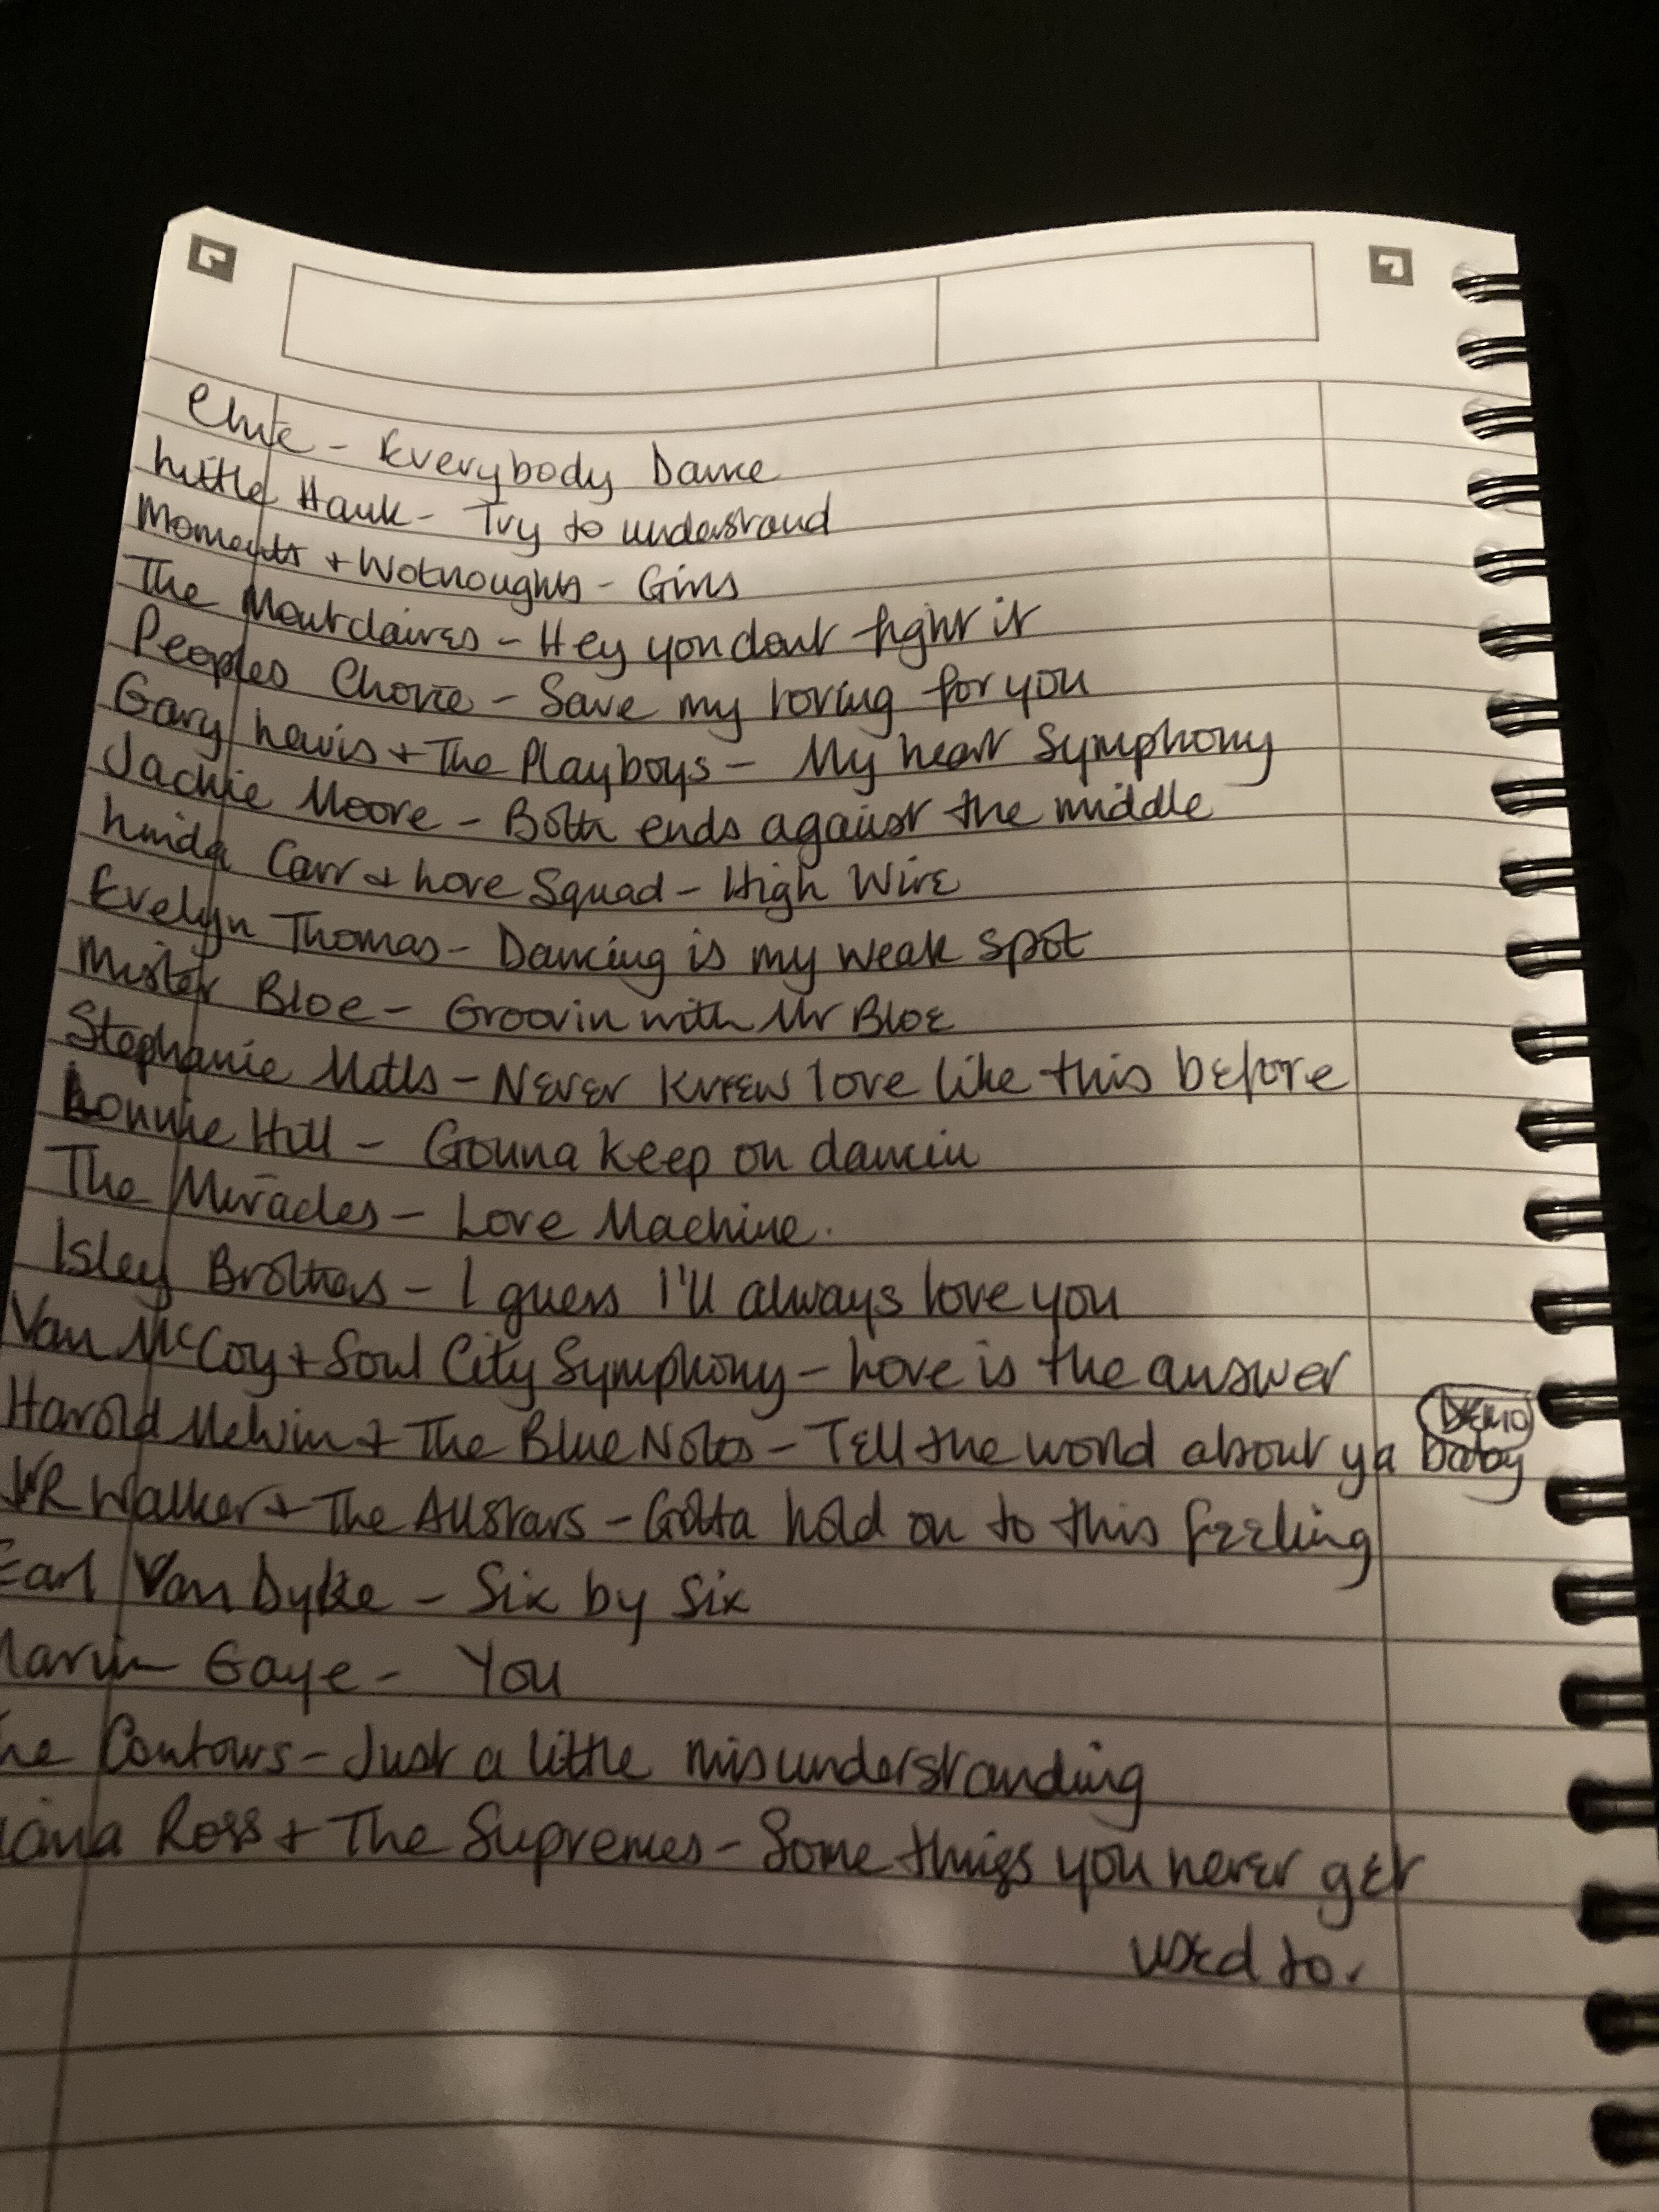 Chic - Everybody Dance
Little Hank - Try to understand
Moments + Wotnoughts - Girls
The Montclaires - Hey you dont fight it
Peoples Choice - Save my loving for you
Gary Lewis + The Playboys - My heart Symphony
Jackie Moore - Both ends against the middle
Linda Carr + Love Squad - High Wire
Evelyn Thomas - Dancing is my weak spot
Mister Bloe - Groovin with Mr Bloe
Stephanie Mills - Never knew love like this before
Lonnie Hill - Gonna keep on dancin
The Miracles - Love Machine.
Isley Brothers - I guess I'll always love you
Van McCoy + Soul City Symphony - Love is the answer
DEMO
Harold Melvin + The Blue Notes - Tell the world about ya baby
JR Walker + The Allstars - Gotta hold on to this feeling
Earl Van Dyke - Six by Six
Marvin Gaye - You
he Contours - Just a little misunderstanding
iana Ross + The Supremes - Some things you never get
used to.